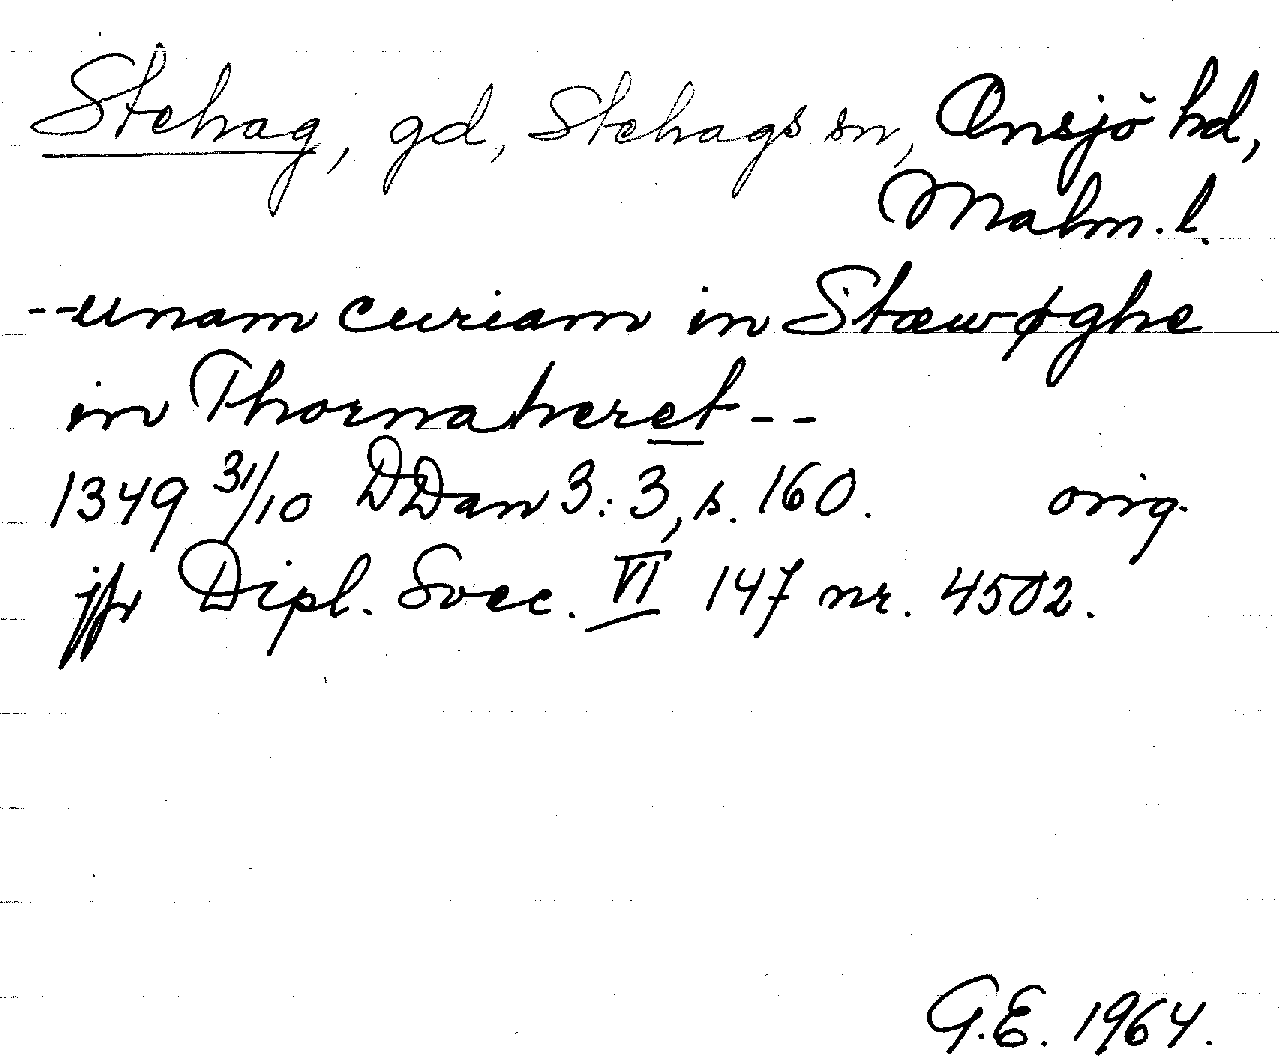 Stehag, gd, Stehags sn, Onsjö hd,
Malm. l.
--unam curiam in Stæwøghe
in Thornaheret--
1349 31/10 DDan 3:3, s. 160. orig.
jfr Dipl. Svec. VI 147 nr. 4502.
G.E. 1964.